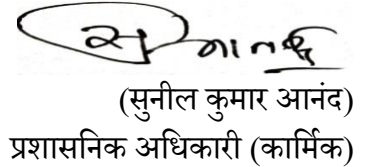 (सुनील कुमार आनंद)
प्रशासनिक अधिकारी (कार्मिक)